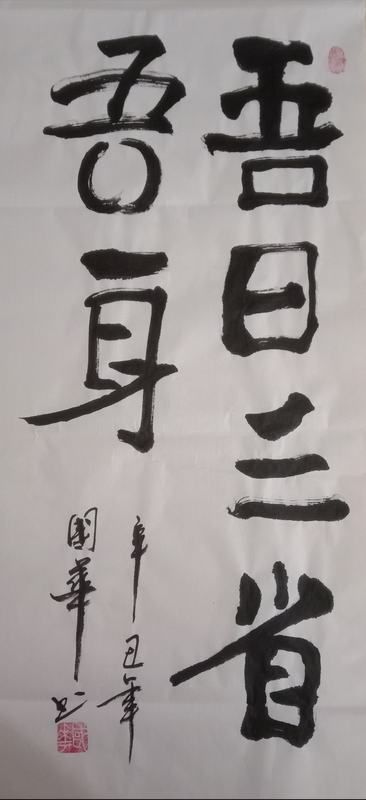 吾日三省
吾身
辛丑年
國華书